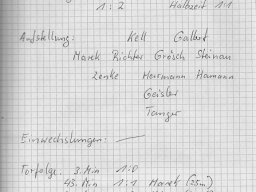 1 : 2 Halbzeit 1:1
Aufstellung: Kell Galbert
Marek Richter Grösch Steinau
Zenke Herrmann Hamann
Geisler
Tanger
Einwechslungen: —
Torfolge: 3. Min 1:0
43. Min 1:1 Marek (25m)